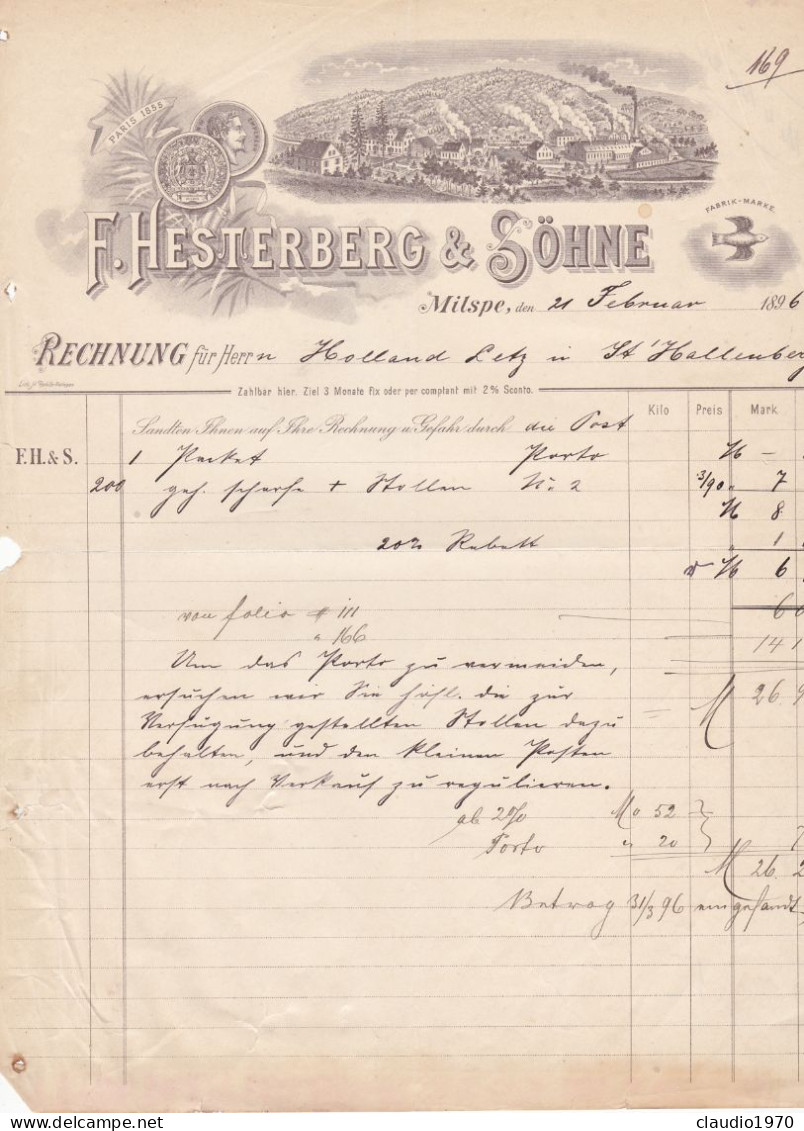 169
PARIS 1855
F. HESTERBERG & SÖHNE
FABRIK-MARKE.
Milspe, den 21 Februar 1896
RECHNUNG für Herrn Holland Letz in St Hallenberg
Zahlbar hier. Ziel 3 Monate fix oder per comptant mit 2% Sconto.
Kilo Preis Mark
Sandten Ihnen auf Ihre Rechnung u. Gefahr durch die Post
F.H. & S. 1 Packet Porto M —
200 geh. scharfe + Stollen No 2 3/90 " 7
M 8
20% Rabatt " 1
M 6
von folio # 111 60
" 166 141
Um das Porto zu vermeiden,
ersuchen wir Sie höfl. die zur M 26.9
Verfügung gestellten Stollen dazu
behalten, und den kleinen Posten
erst nach Verkauf zu regulieren.
ab 2% M 0 52
Porto " 20
M 26. 2
Betrag 31/3 96 eingesandt
claudio1970
www.delcampe.net